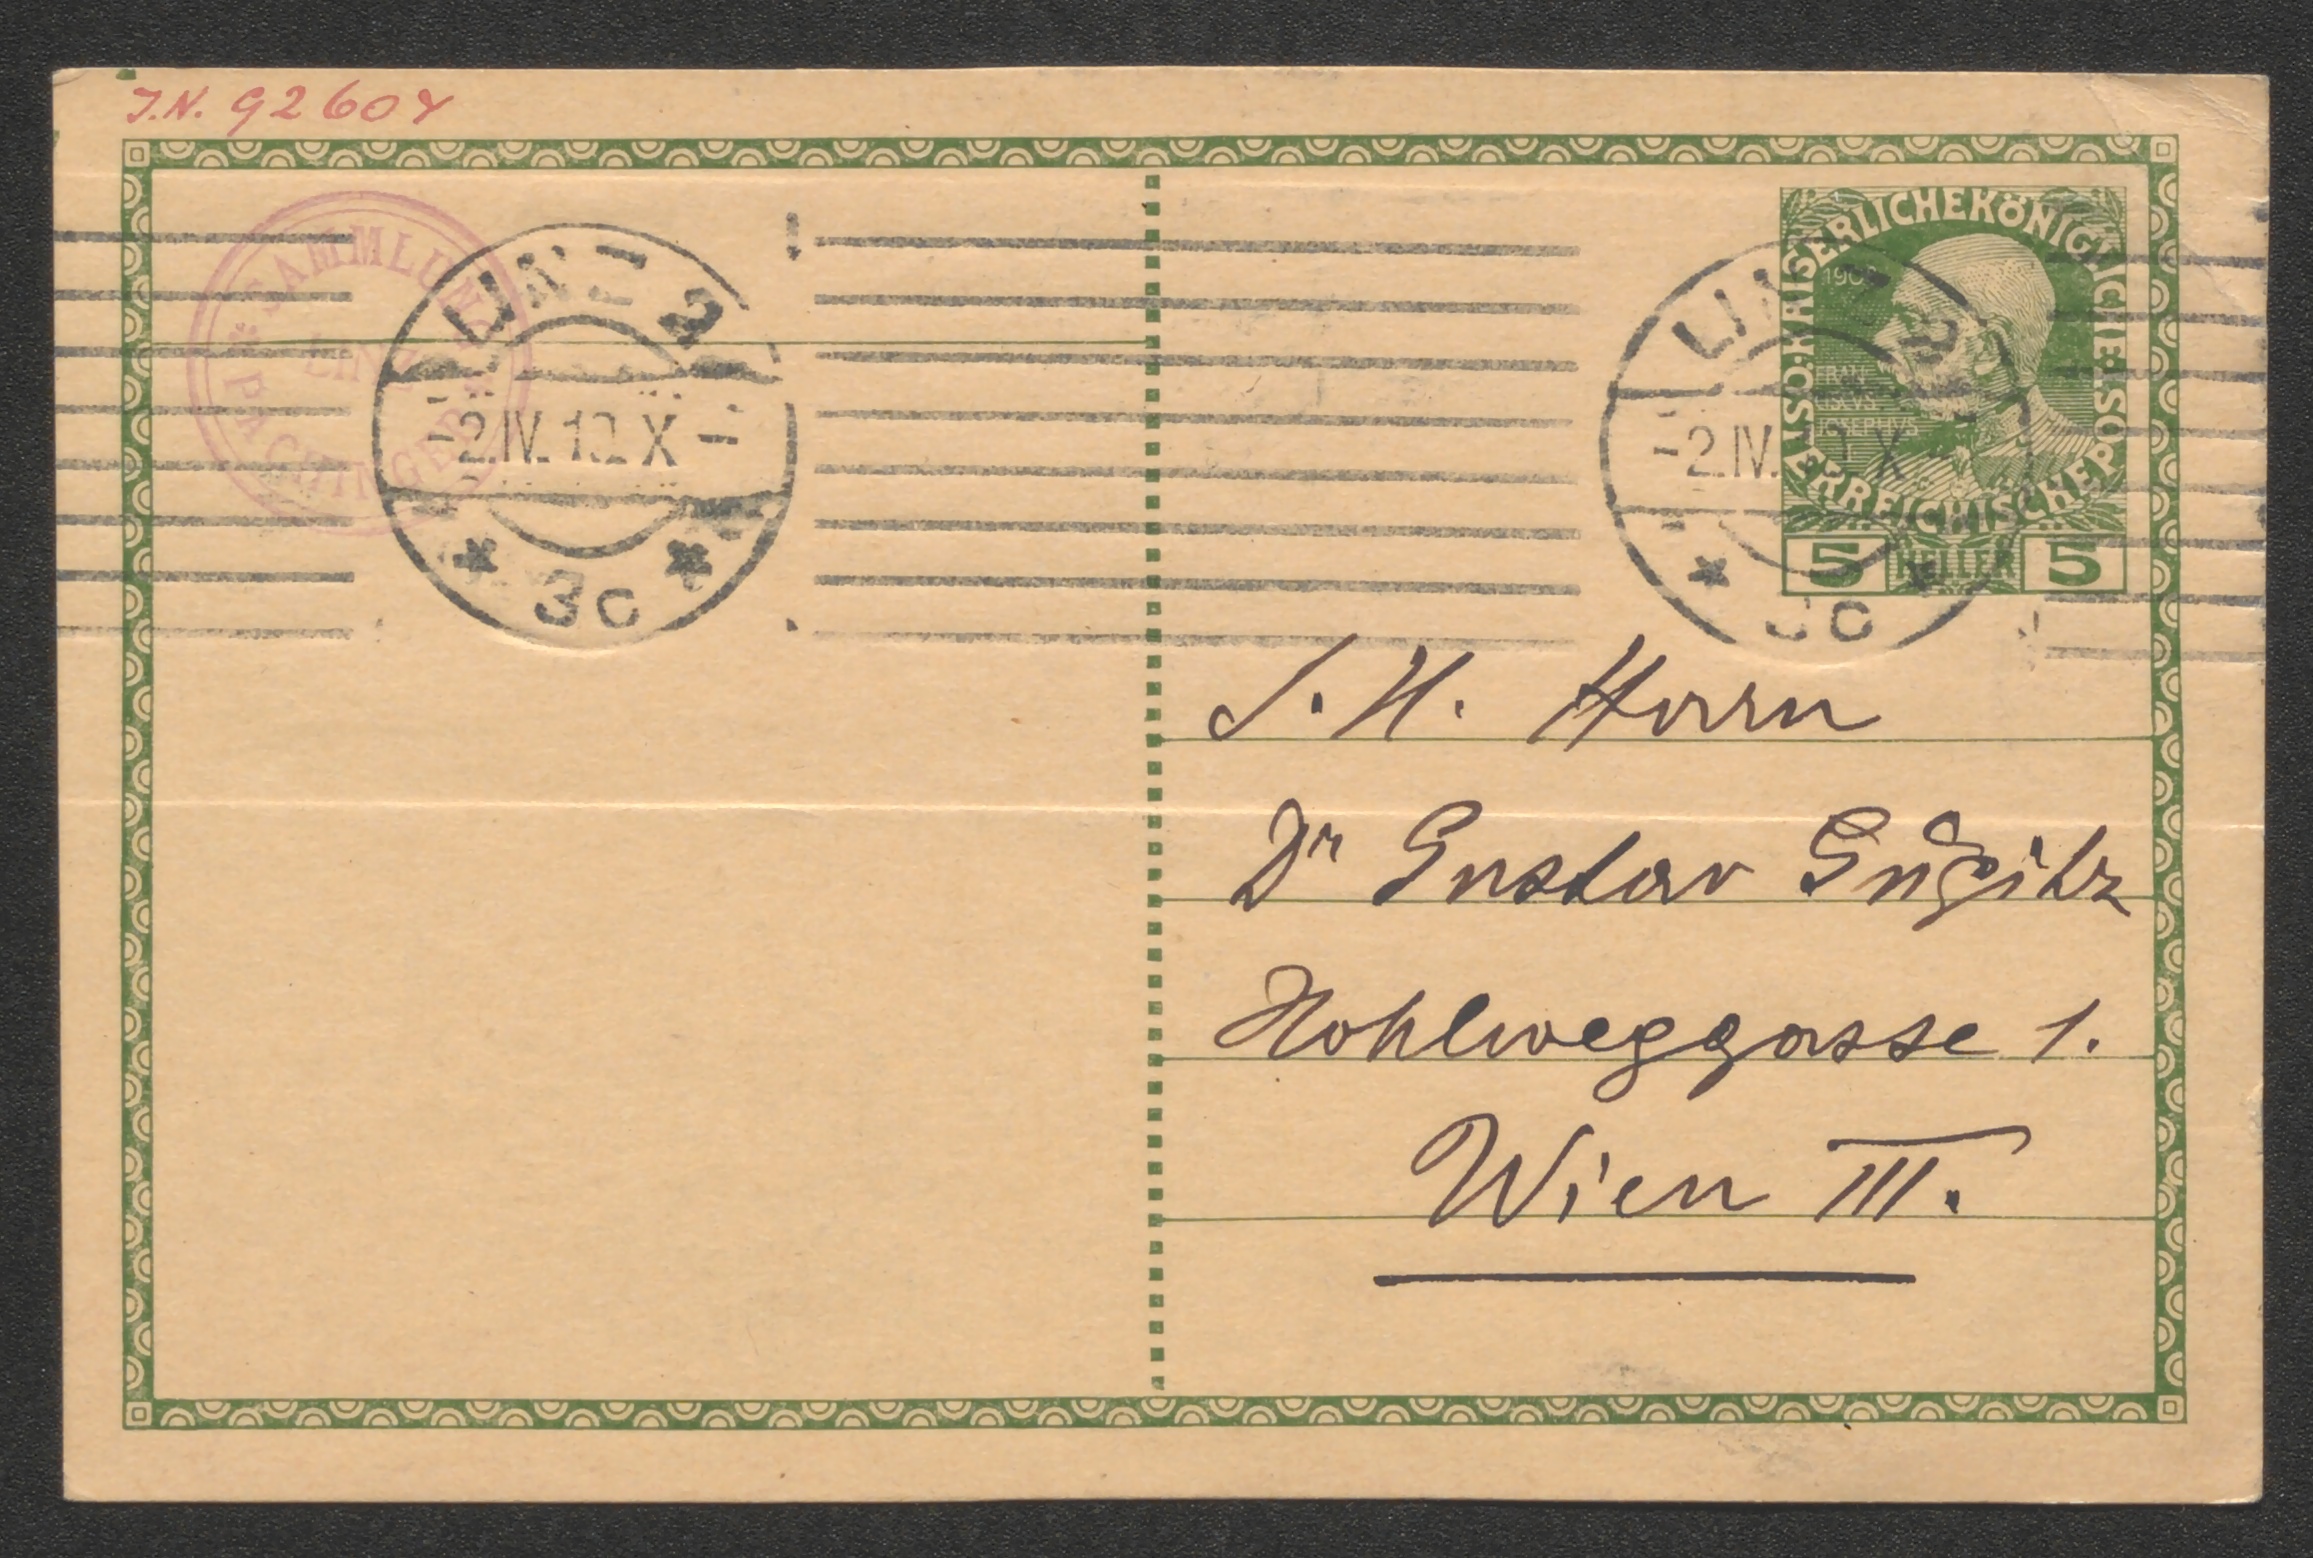 J.N. 92604
SAMMLUNG
LINZ
PACHINGER
LINZ 2
-2.IV.10.X-
3c
LINZ 2
-2.IV.10.X-
3c
KAISERLICHEKÖNIGLICHE
ÖSTERREICHISCHEPOST
1908
FRANCISCVS
IOSEPHVS
5 HELLER 5
S. H. Herrn
Dr Gustav Gugitz
Hohlweggasse 1.
Wien III.